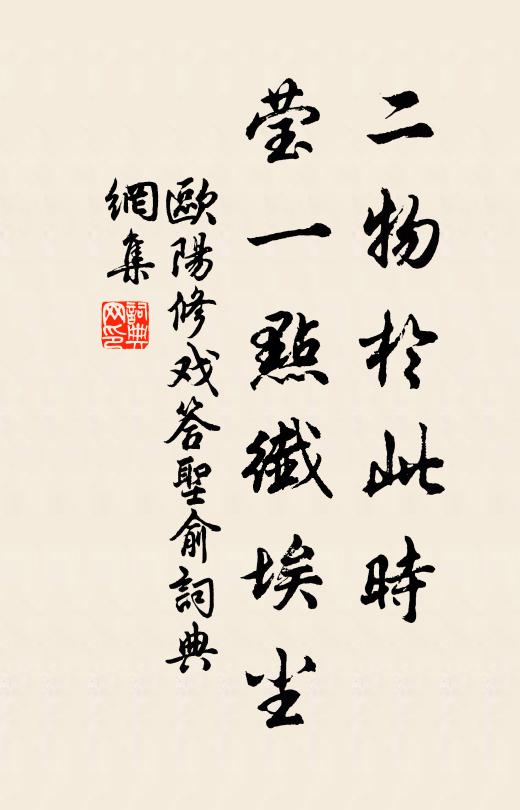 二物於此時
莹一點纖埃尘
歐陽修戏答聖俞詞典
網集
詞典网印